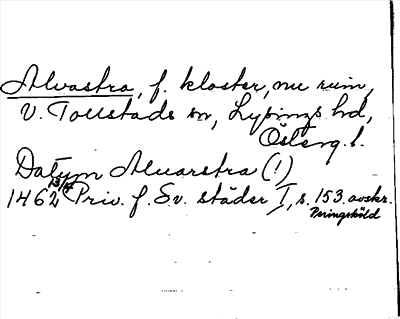 Alvastra, f. kloster, nu ruin,
V. Tollstads sn, Lysings hd,
Österg. l.
Datum Aluarstra (!)
1462 13/4 Priv. f. Sv. städer I, s. 153. avskr.
Peringsköld